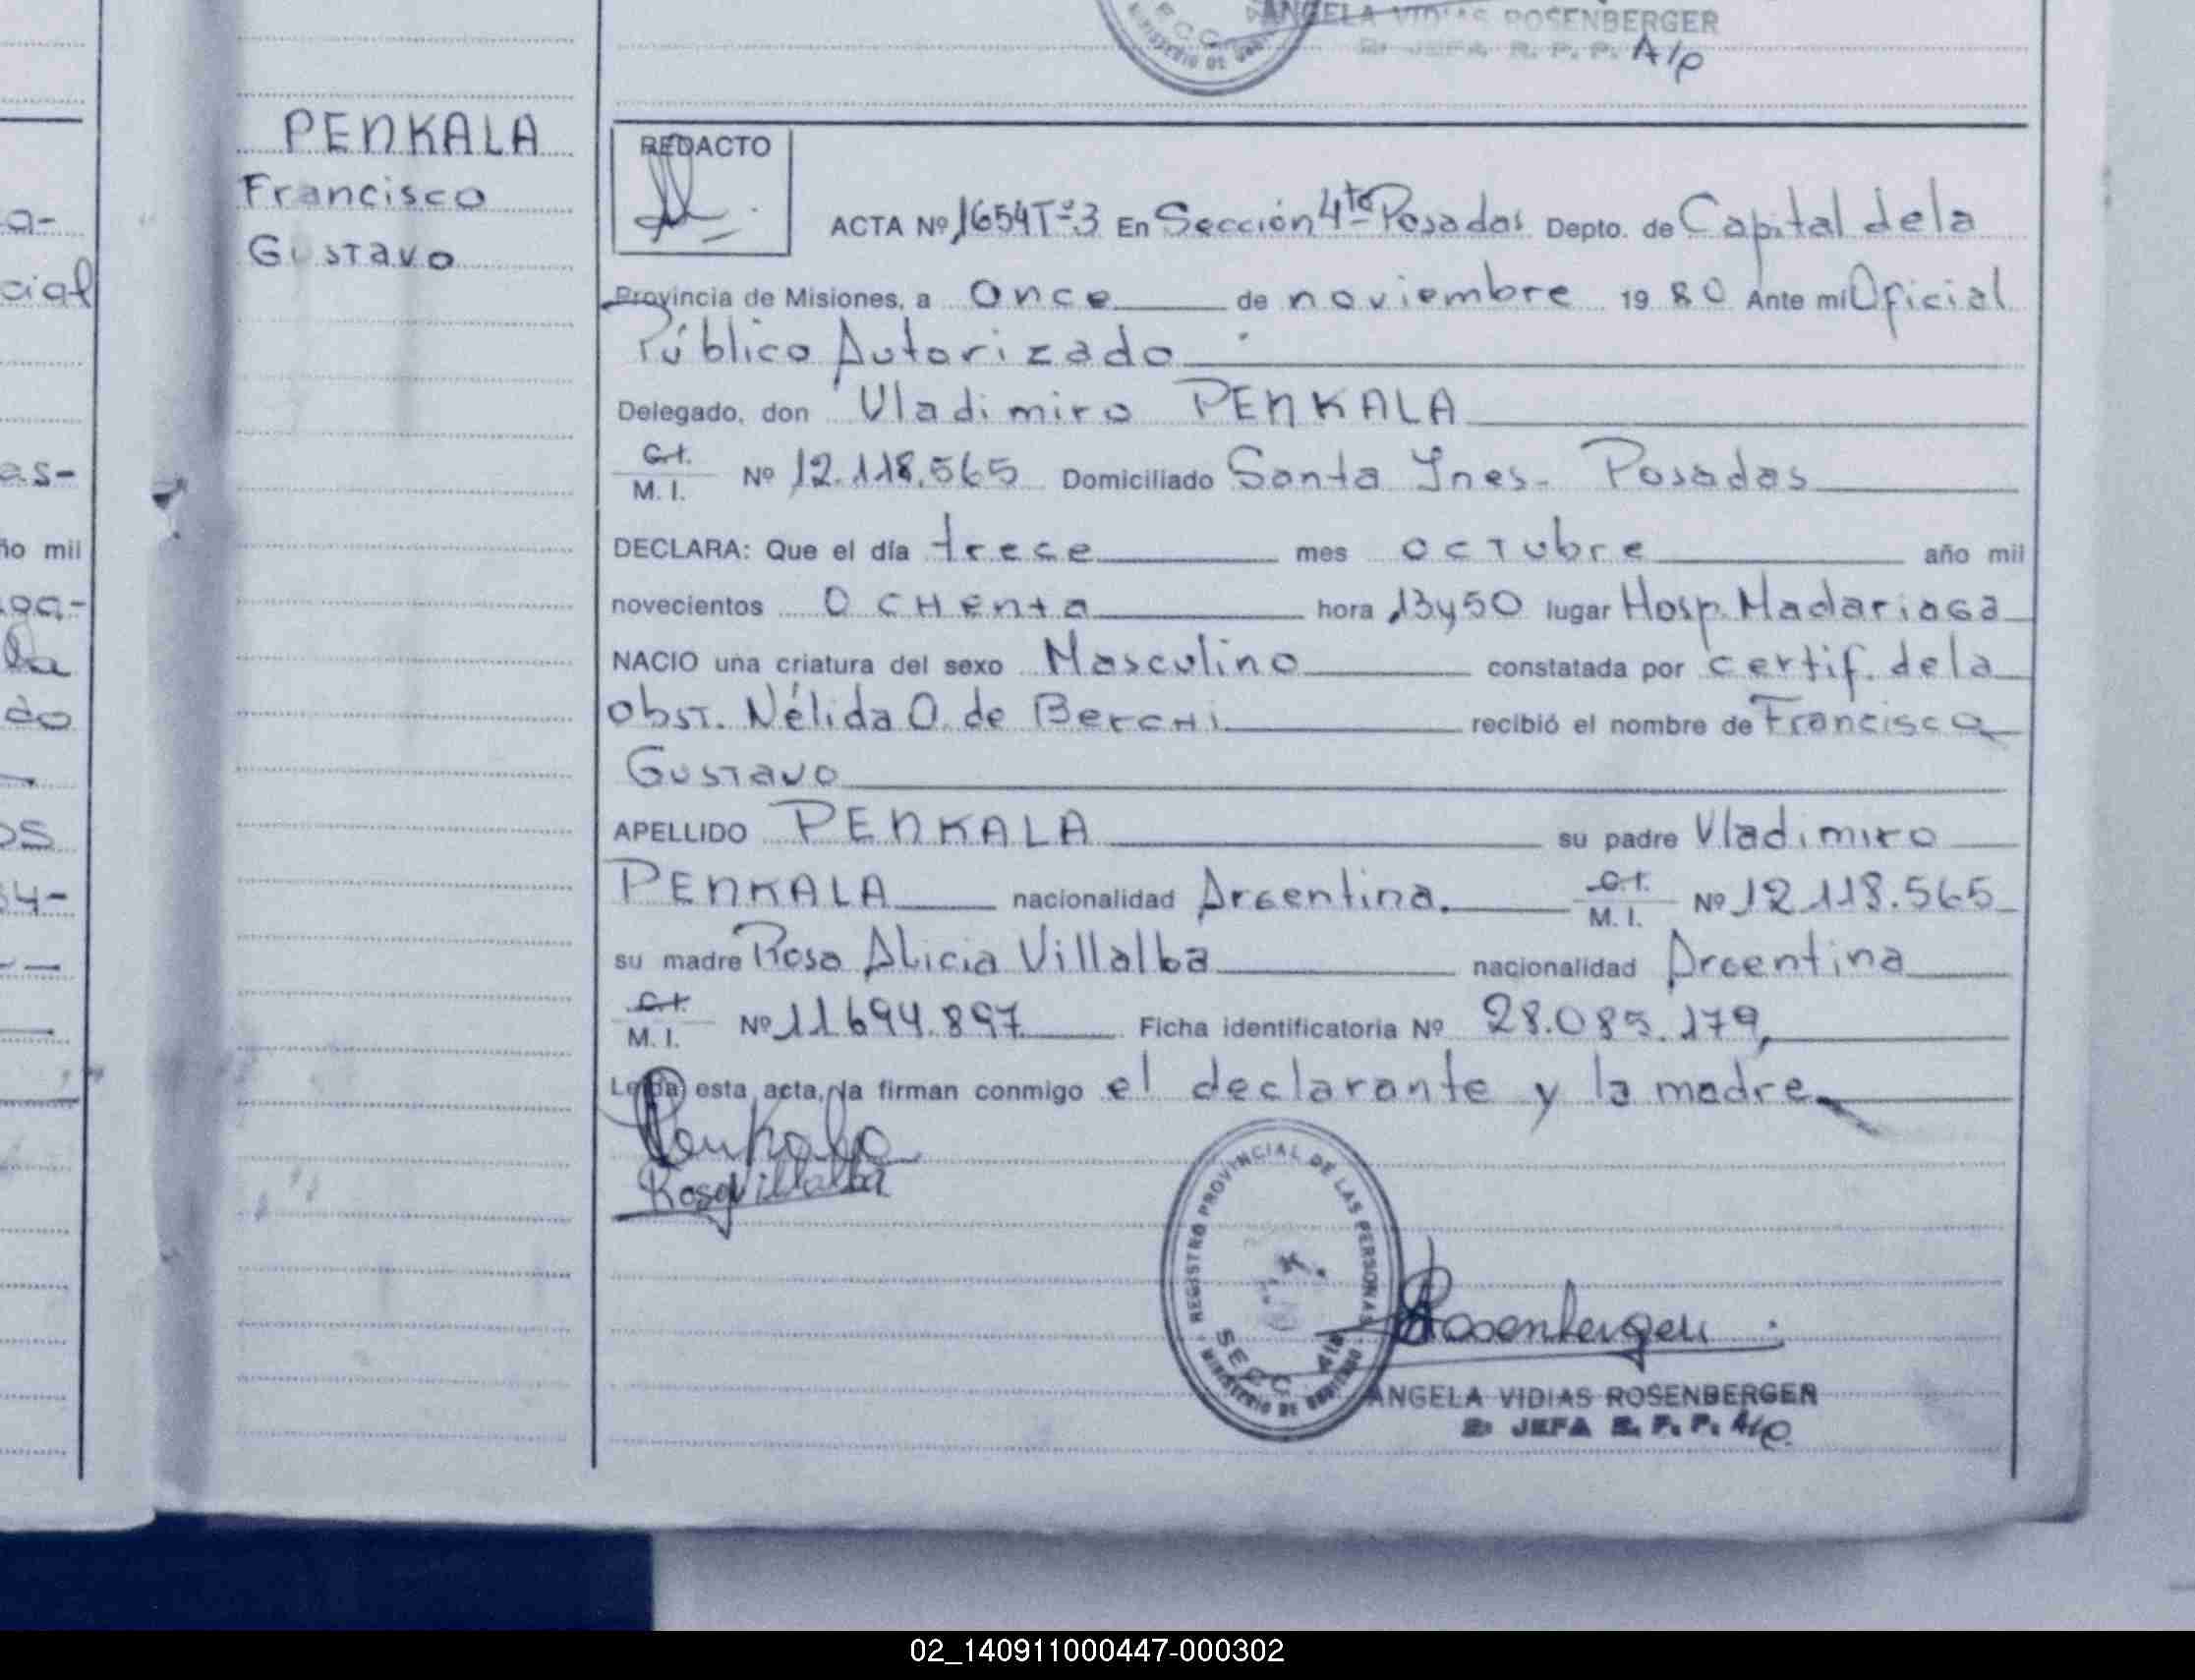 ANGELA VIDIAS ROSENBERGER
2: JEFA R. P. P. A/p
PENKALA
Francisco
Gustavo
REDACTO
ACTA Nº 1654 Tº 3 En Sección 4ta Posadas Depto. de Capital de la
Provincia de Misiones, a Once de noviembre 1980 Ante mi Oficial
Público Autorizado
Delegado, don Vladimiro PENKALA
C.I. M. I. Nº 12.118.565 Domiciliado Santa Ines - Posadas
DECLARA: Que el día trece mes octubre año mil
novecientos OCHenta hora 13 y 50 lugar Hosp. Madariaga
NACIO una criatura del sexo Masculino constatada por certif. de la
obst. Nélida O. de Berchi recibió el nombre de Francisco
Gustavo
APELLIDO PENKALA su padre Vladimiro
PENKALA nacionalidad Argentina. C.I. M. I. Nº 12.118.565
su madre Rosa Alicia Villalba nacionalidad Argentina
C.I. M. I. Nº 11694.897 Ficha identificatoria Nº 28.085.179,
Leída esta acta, la firman conmigo el declarante y la madre
Penkala
Rosa Villalba
REGISTRO PROVINCIAL DE LAS PERSONAS
SECC. 4ta
MINISTERIO DE GOBIERNO
Rosenberger
ANGELA VIDIAS ROSENBERGER
2: JEFA R. P. P. A/p
cial
as-
ño mil
la
do
os
02_140911000447-000302